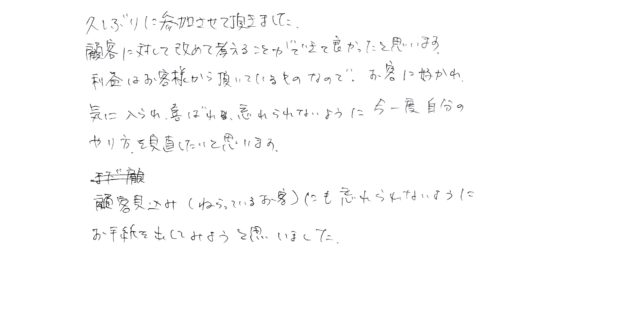 久しぶりに参加させて頂きました.
顧客に対して改めて考えることができて良かったと思います.
利益はお客様から頂いているものなので、お客に好かれ、
気に入られ、喜ばれる、忘れられないように今一度自分の
やり方を見直したいと思います.
まだ顧
顧客見込み(ねらっているお客)にも忘れられないように
お手紙を出してみようを思いました.